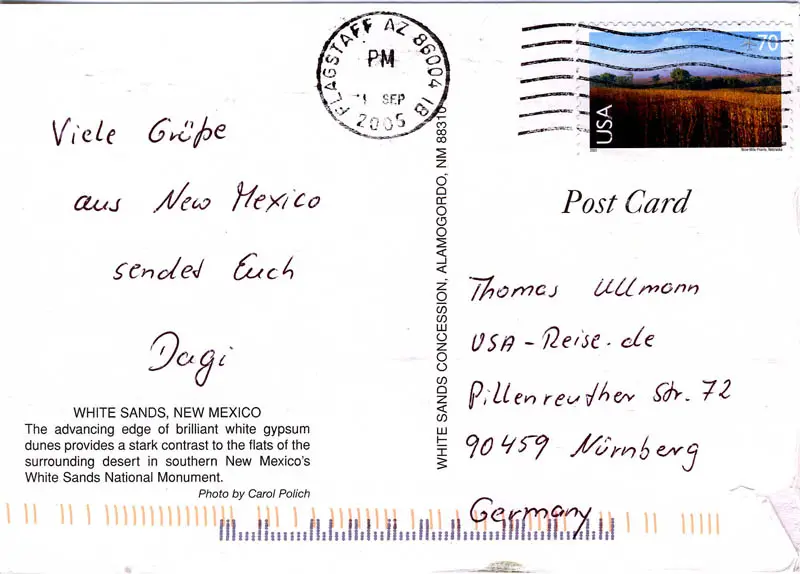 Viele Grüße
aus New Mexico
sendet Euch
Dagi
WHITE SANDS, NEW MEXICO
The advancing edge of brilliant white gypsum
dunes provides a stark contrast to the flats of the
surrounding desert in southern New Mexico's
White Sands National Monument.
Photo by Carol Polich
WHITE SANDS CONCESSION, ALAMOGORDO, NM 88310
FLAGSTAFF AZ 86004 18
PM
SEP
2005
70
USA
Post Card
Thomas Ullmann
USA-Reise.de
Pillenreuther Str. 72
90459 Nürnberg
Germany